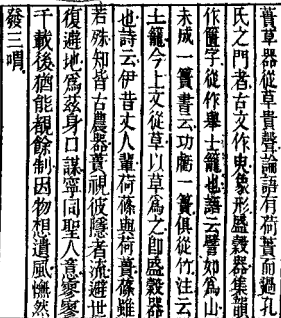 蕢草器從草貴聲論語有荷蕢而過孔
氏之門者古文作臾象形盛穀器集韻
作匱字從作舉土籠也語云譬如為山
未成一簣書云功虧一簣俱從竹注云
土籠今上文從草以草為之即盛穀器
也詩云伊昔丈人輩荷蓧與荷蕢蓧雖
若殊知皆古農器蕢視彼隱者流避世
復避地為茲身口謀寧同聖人意寥寥
千載後猶能覩餘制因物想遺風憮然
發三喟